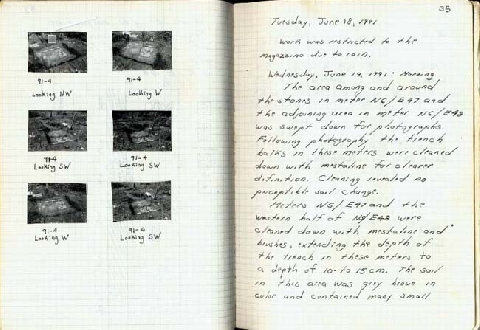 91-4
Looking NW
91-4
Looking W
91-4
Looking SW
91-4
Looking SW
91-4
Looking W
91-4
Looking SW
35
Tuesday, June 18, 1991
Work was restricted to the
magazzino due to rain.
Wednesday, June 19, 1991: Morning
The area among and around
the stones in meter N6/E47 and
the adjoining area in meter N6/E48
was swept down for photographs
Following photography the trench
balks in these meters were cleaned
down with mestaline for clearer
definition. Cleaning revealed no
perceptible soil change.
Meters N6/E47 and the
western half of N6/E48 were
cleaned down with mestaline and
brushes, extending the depth of
the trench in these meters to
a depth of 10 to 15 cm. The soil
in this area was grey brown in
color and contained many small